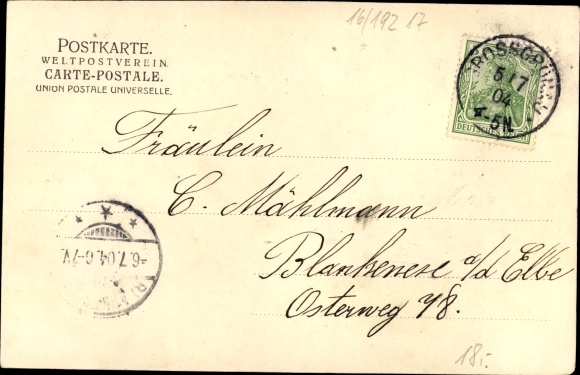 16/192 17
POSTKARTE.
WELTPOSTVEREIN.
CARTE-POSTALE.
UNION POSTALE UNIVERSELLE.
5/7
04
4-5N.
DEUTSCHES REICH
Fräulein
C. Mählmann
Blankenese a/d Elbe
Osterweg 48.
-6.7.04.6-7V.
18.-